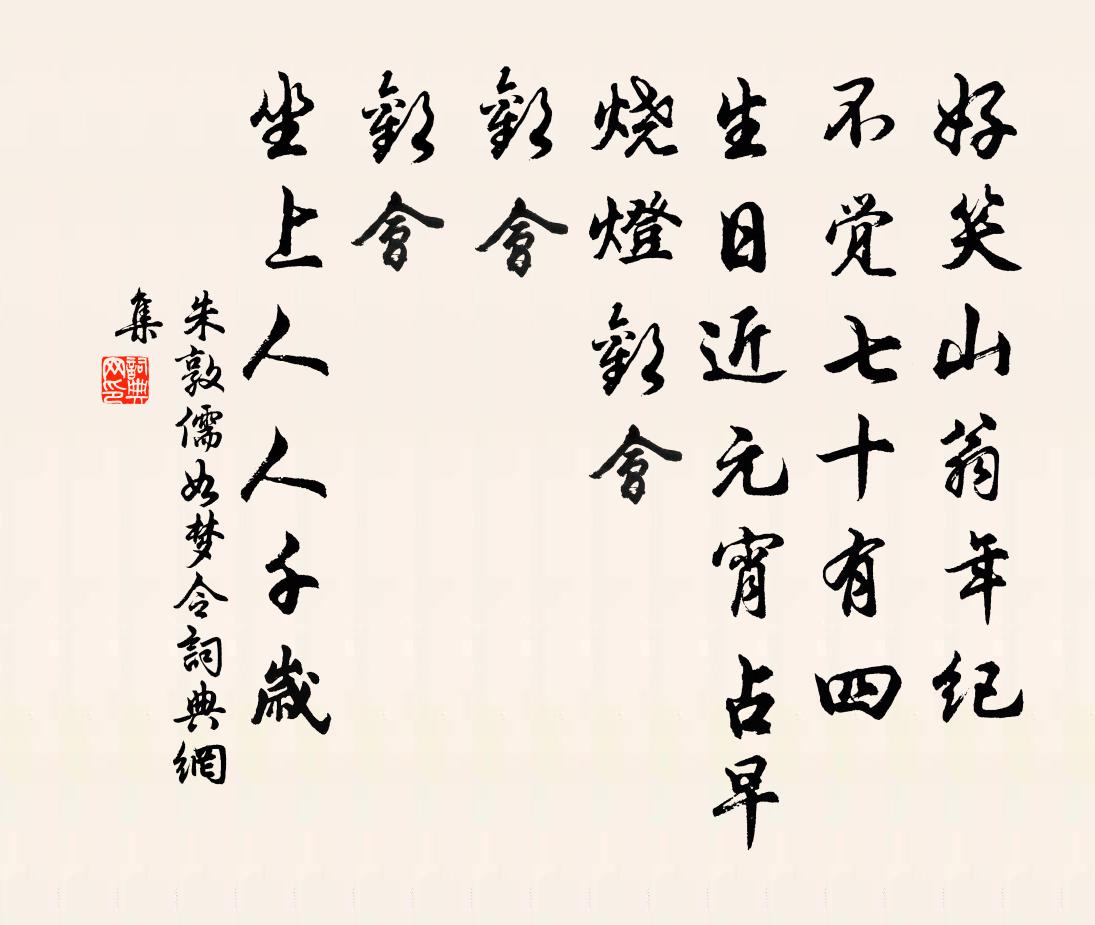 好笑山翁年纪
不觉七十有四
生日近元宵占早
烧燈歡會
歡會
歡會
坐上人人千歲
朱敦儒如梦令詞典網
集
詞典网印